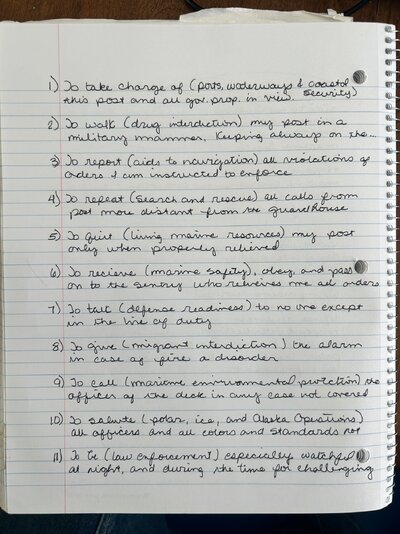 1) To take charge of (ports, waterways & coastal security)
this post and all gov. prop. in view.
2) To walk (drug interdiction) my post in a
military manner, Keeping always on the...
3) To report (aids to navigation) all violations of
orders I am instructed to enforce
4) To repeat (search and rescue) all calls from
post more distant from the guardhouse
5) To quit (living marine resources) my post
only when properly relieved
6) To recieve (marine safety), obey, and pass
on to the sentry who relieves me all orders
7) To talk (defense readiness) to no one except
in the line of duty
8) To give (migrant interdiction) the alarm
in case of fire or disorder
9) To call (maritime environmental protection) the
officer of the deck in any case not covered
10) To salute (polar, ice, and Alaska Operations)
all officers and all colors and standards not
11) To be (law enforcement) especially watchful
at night, and during the time for challenging